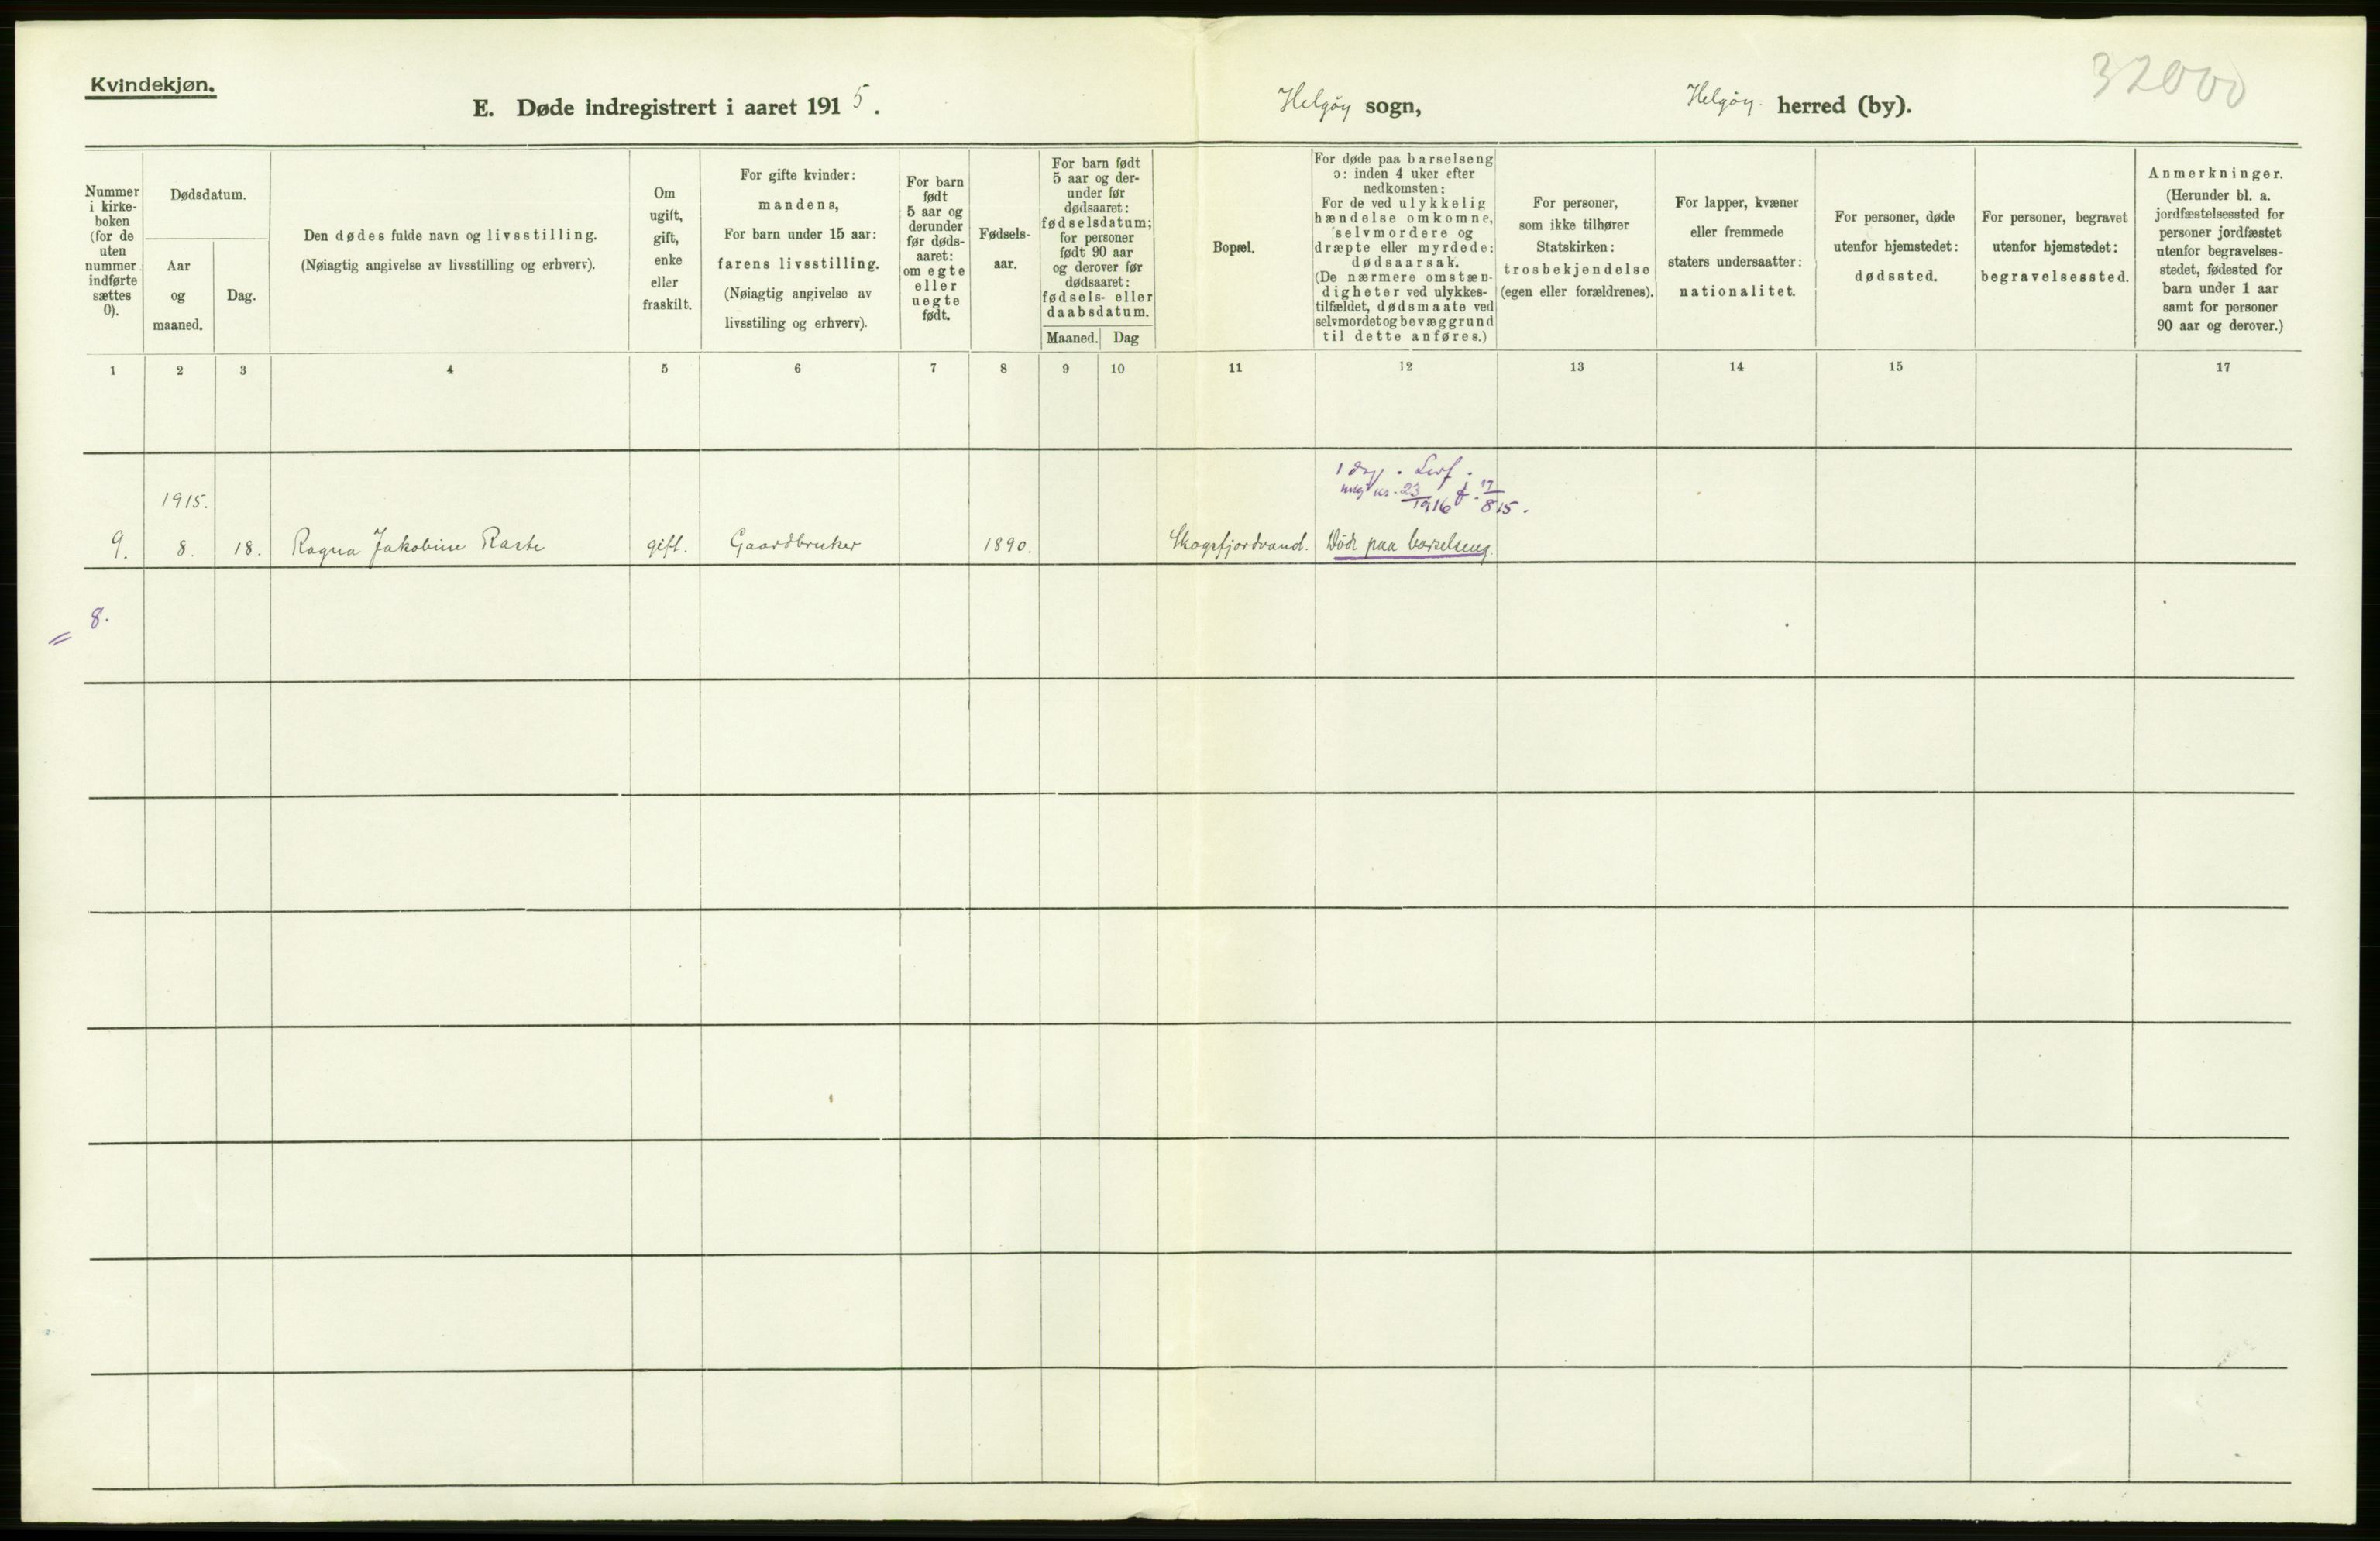 Kvindekjøn.
E. Døde indregistrert i aaret 1915.
Helgøy sogn,
Helgøy. herred (by).
32000
Nummer i kirke-boken (for de uten nummer indførte sættes 0).
Dødsdatum.
Aar og maaned.
Dag.
Den dødes fulde navn og livsstilling.
(Nøiagtig angivelse av livsstilling og erhverv).
Om ugift, gift, enke eller fraskilt.
For gifte kvinder:
mandens,
For barn under 15 aar:
farens livsstilling.
(Nøiagtig angivelse av
livsstiling og erhverv).
For barn født 5 aar og derunder før døds-aaret: om egte eller uegte født.
Fødsels-aar.
For barn født 5 aar og der-under før dødsaaret: fødselsdatum; for personer født 90 aar og derover før dødsaaret: fødsels- eller daabsdatum.
Maaned. Dag
Bopæl.
For døde paa barselseng
ɔ: inden 4 uker efter
nedkomsten:
For de ved ulykkelig
hændelse omkomne,
selvmordere og
dræpte eller myrdede:
dødsaarsak.
(De nærmere omstæn-
digheter ved ulykkes-
tilfældet, dødsmaate ved
selvmordet og bevæggrund
til dette anføres.)
For personer,
som ikke tilhører
Statskirken:
trosbekjendelse
(egen eller forældrenes).
For lapper, kvæner
eller fremmede
staters undersaatter:
nationalitet.
For personer, døde
utenfor hjemstedet:
dødssted.
For personer, begravet
utenfor hjemstedet:
begravelsessted.
Anmerkninger.
(Herunder bl. a.
jordfæstelsessted for
personer jordfæstet
utenfor begravelses-
stedet, fødested for
barn under 1 aar
samt for personer
90 aar og derover.)
1 2 3 4 5 6 7 8 9 10 11 12 13 14 15 17
1 dag.
nr. 23/1916 f. 17/8 15.
1915.
9. 8. 18. Ragna Jakobine Raste gift. Gaardbruker 1890. Skogsfjordvand. Døde paa barselseng.
= 8.